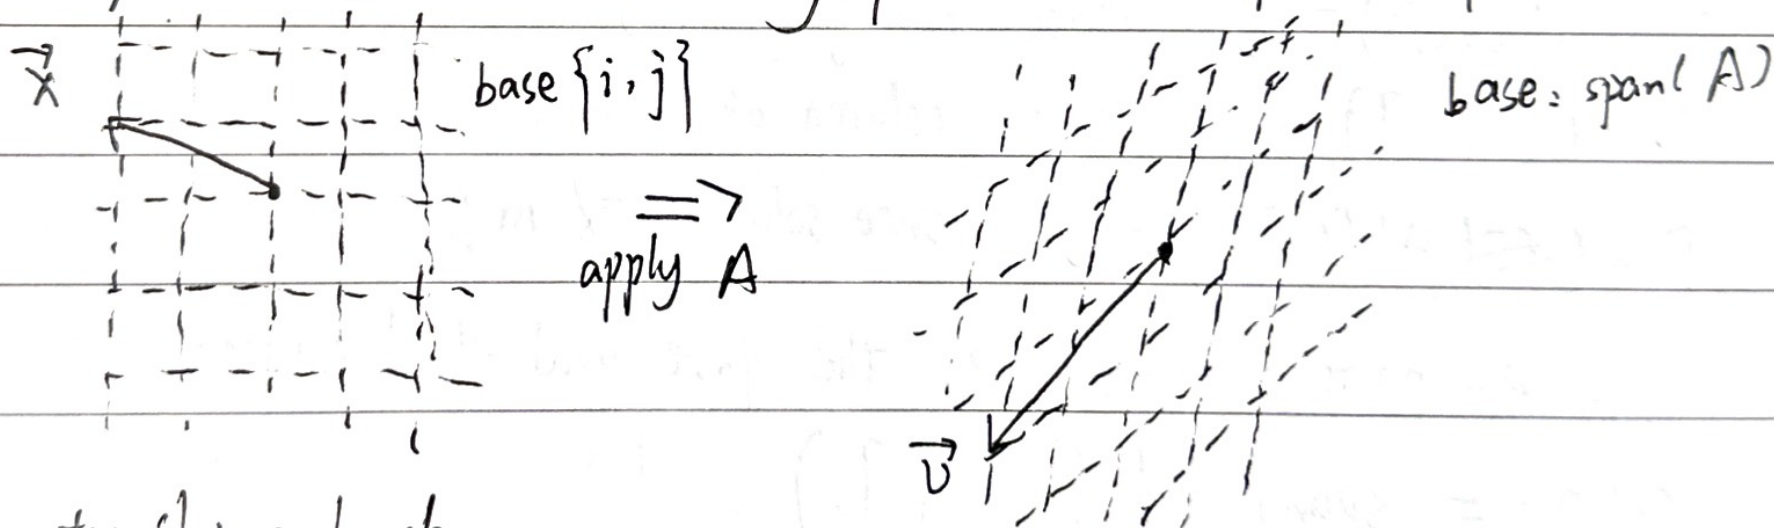 x⃗
base {i, j}
⇒
apply A
base: span(A)
v⃗